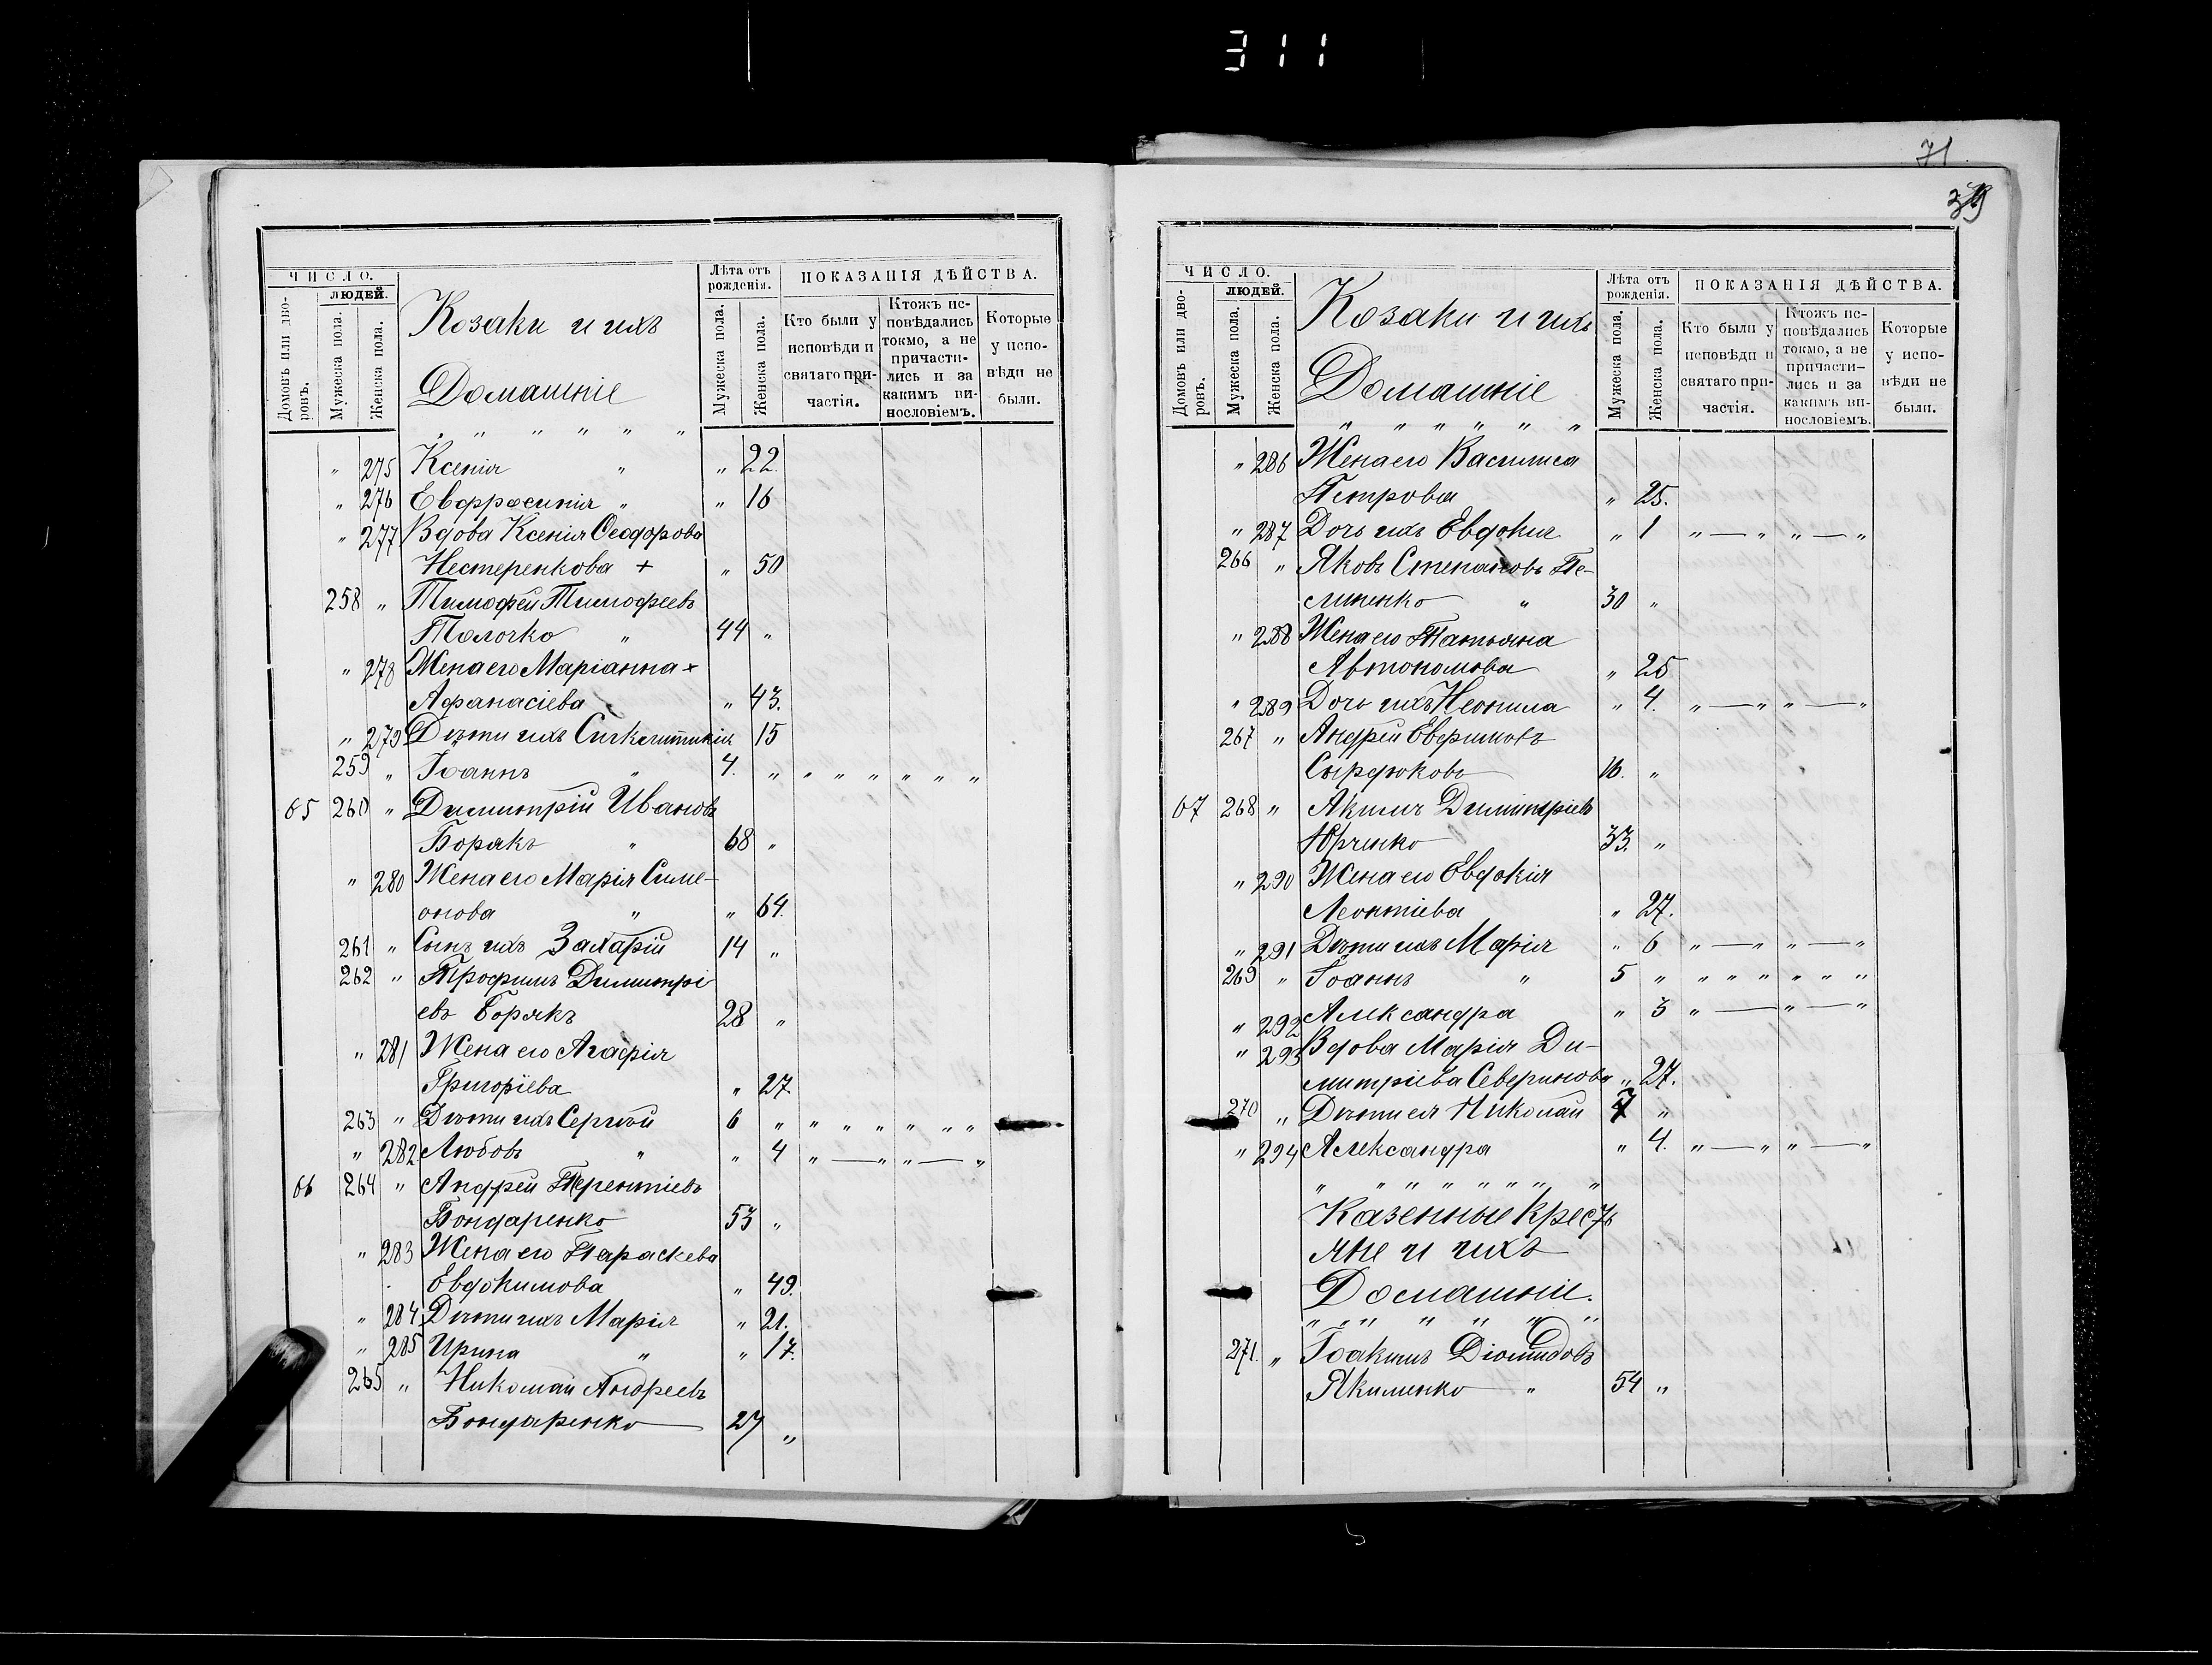 311
71
39
ЧИСЛО.
ЛЮДЕЙ.
Домовъ или дворовъ.
Мужеска пола.
Женска пола.
Козаки и ихъ
Домашніе
Лѣта отъ рожденія.
Мужеска пола.
Женска пола.
ПОКАЗАНІЯ ДѢЙСТВА.
Кто были у исповѣди и святаго причастія.
Ктожъ исповѣдались токмо, а не причастились и за какимъ винословіемъ.
Которые у исповѣди не были.
" 275 Ксенія " " 22.
" 276 Евфросинія " " 16
" 277 Вдова Ксенія Ѳеодорова
Нестеренкова + " 50
258 " Тимофей Тимофеевъ
Толочко " 44 "
" 278 Жена его Маріанна +
Афанасіева " 43.
" 279 Дѣти ихъ Сигклитикія 15
259 " Іоаннъ " 4. " " " " " " "
65 260 " Димитрій Ивановъ
Борякъ " 68 "
" 280 Жена его Марія Симе-
онова " " 64.
261 " Сынъ ихъ Захарій 14 "
262 " Трофимъ Димитрі
евъ Борякъ 28 "
" 281 Жена его Агафія
Григоріева " 27
263 " Дѣти ихъ Сергѣй 6 " " " " " " "
" 282 Любовъ " " 4 " — " " — "
66 264 " Андрей Терентіевъ
Бондаренко 53 "
" 283 Жена его Параскева
Евдокимова " 49.
" 284 Дѣти ихъ Марія " 21.
" 285 Ирина " " 17.
265 " Николай Андреевъ
Бондаренко 27 "
ЧИСЛО.
ЛЮДЕЙ.
Домовъ или дворовъ.
Мужеска пола.
Женска пола.
Козаки и ихъ
Домашніе
Лѣта отъ рожденія.
Мужеска пола.
Женска пола.
ПОКАЗАНІЯ ДѢЙСТВА.
Кто были у исповѣди и святаго причастія.
Ктожъ исповѣдались токмо, а не причастились и за какимъ винословіемъ.
Которые у исповѣди не были.
" 286 Жена его Василиса
Петрова " 25.
" 287 Дочь ихъ Евдокія " 1 " — " " — "
266 " Яковъ Степановъ Пе-
липенко " 30 "
" 288 Жена его Татьяна
Автономова " 25
" 289 Дочь ихъ Неонила " 4. " — " " — "
267 " Андрей Евфимовъ
Сырдюковъ 16. "
67 268 " Акимъ Димитріевъ
Юрченко 33. "
" 290 Жена его Евдокія
Леонтіева " 27.
" 291 Дѣти ихъ Марія " 6 " — " " — "
269 " Іоаннъ " 5 " " " " " " "
" 292 Александра " 3 " — " — "
" 293 Вдова Марія Ди-
митріева Северинова " 27.
270 " Дѣти ея Николай 7 "
" 294 Александра " 4. " — " " — "
Казенные Крестъ
яне и ихъ
Домашніе.
271. " Іоакимъ Діомидовъ
Якименко " 54 "